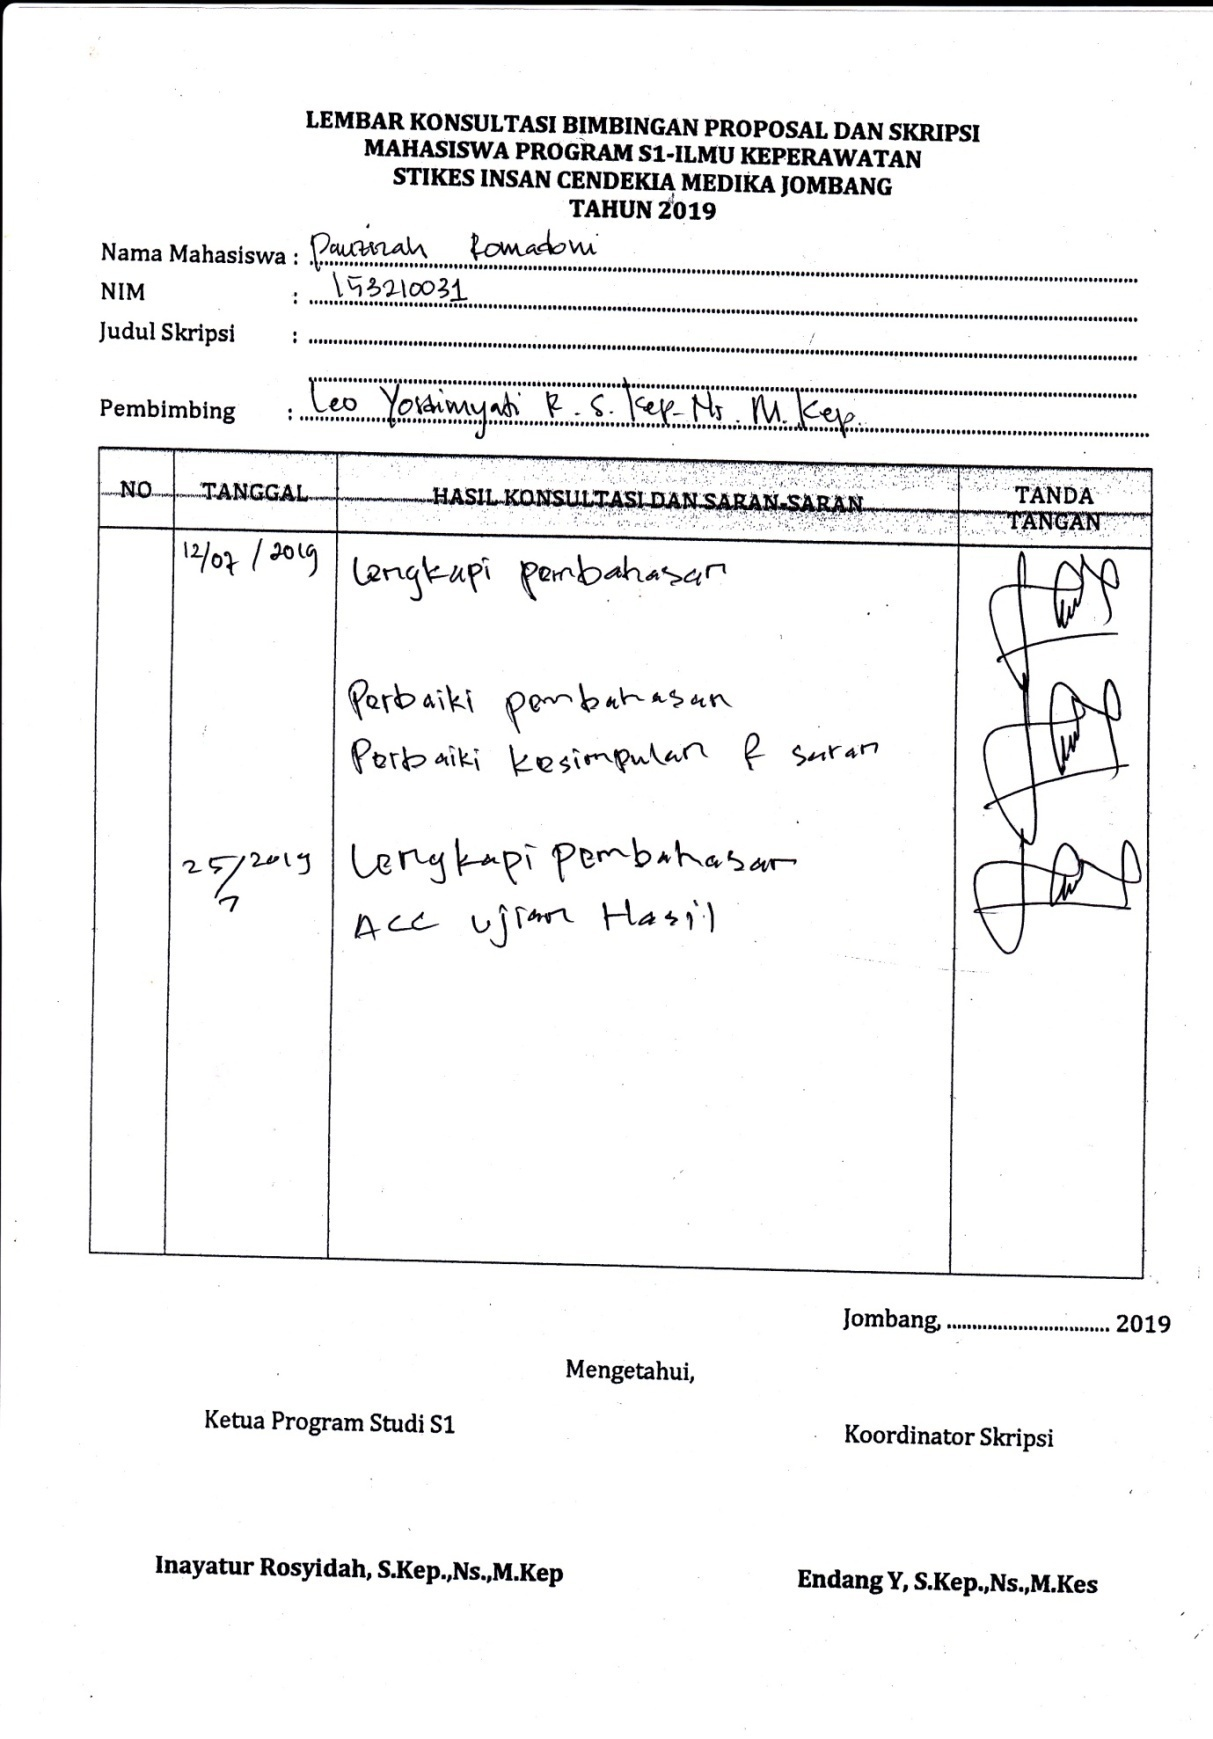 LEMBAR KONSULTASI BIMBINGAN PROPOSAL DAN SKRIPSI
MAHASISWA PROGRAM S1-ILMU KEPERAWATAN
STIKES INSAN CENDEKIA MEDIKA JOMBANG
TAHUN 2019
Nama Mahasiswa : Romadoni
NIM : 153210031
Judul Skripsi :
Pembimbing : Leo R. S. Kep. Ns. M. Kep.
NO TANGGAL HASIL KONSULTASI DAN SARAN-SARAN TANDA TANGAN
12/07/2019 Lengkapi pembahasan
Perbaiki pembahasan
Perbaiki kesimpulan & saran
25/7 2019 Lengkapi pembahasan
ACC ujian Hasil
Jombang, ................................ 2019
Mengetahui,
Ketua Program Studi S1 Koordinator Skripsi
Inayatur Rosyidah, S.Kep.,Ns.,M.Kep Endang Y, S.Kep.,Ns.,M.Kes